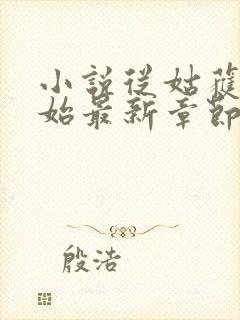 小說從姑獲
始最新章節
殷浩